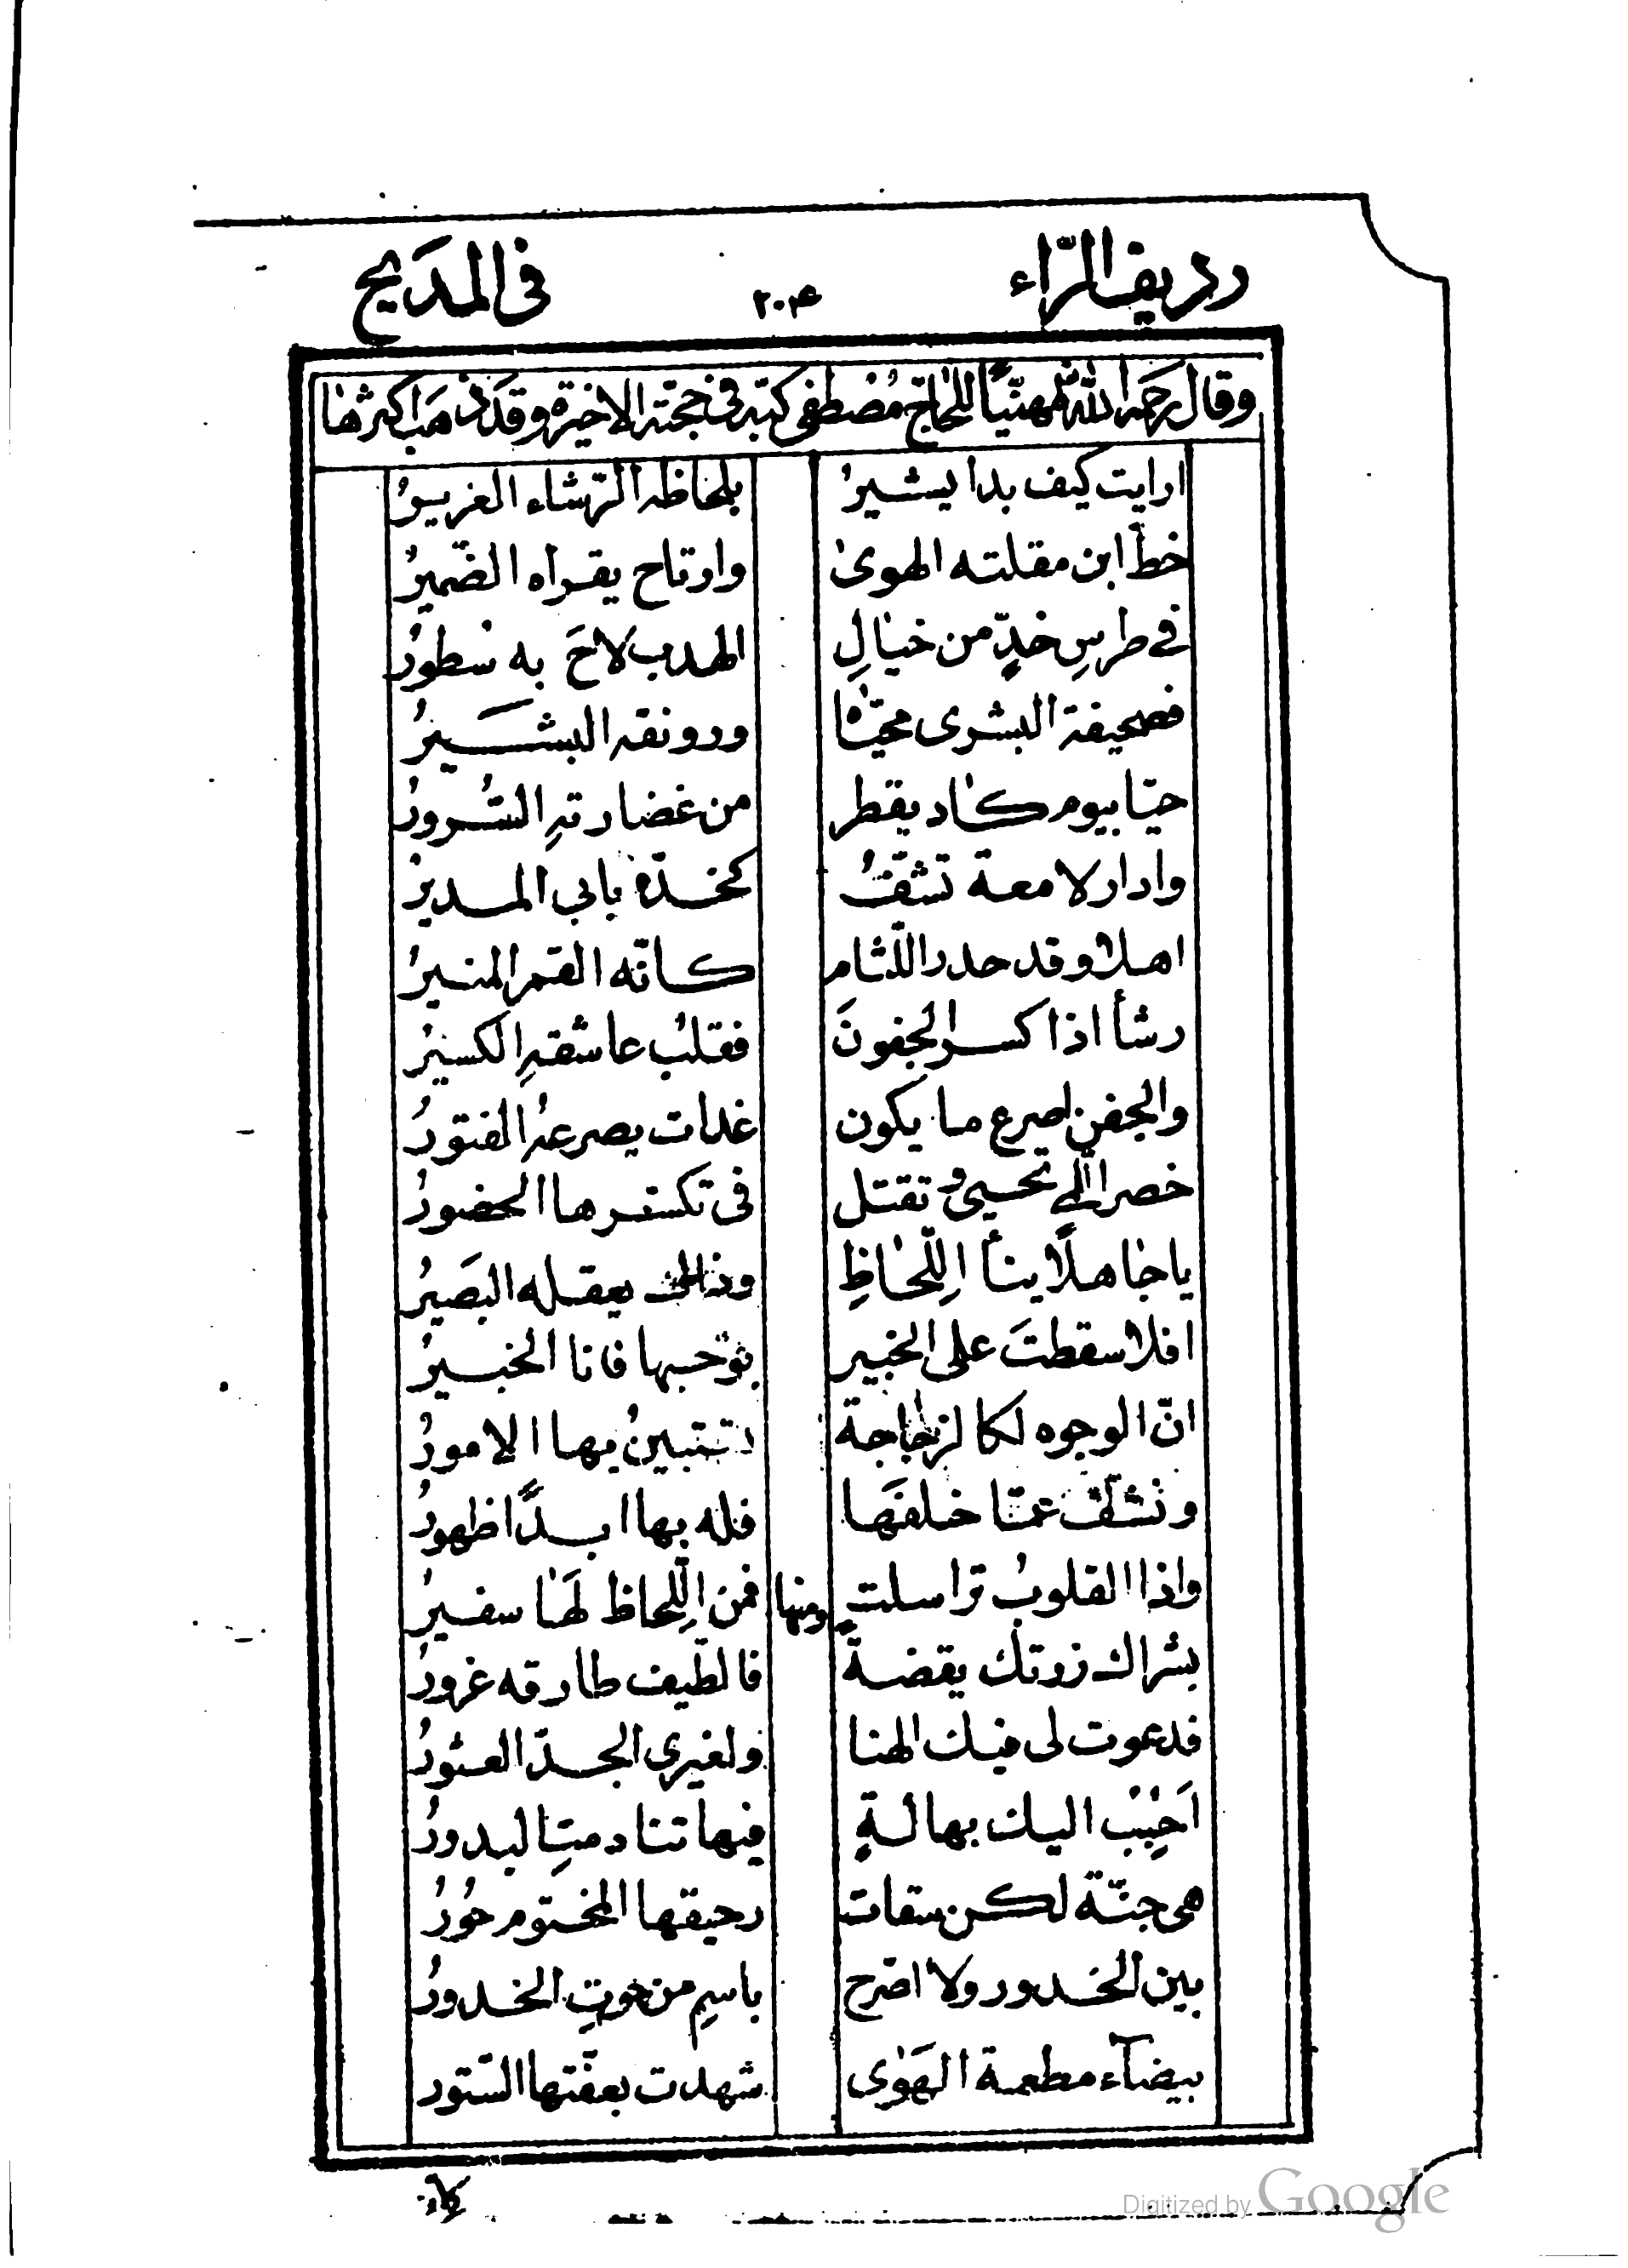 رديف الرّاء ٢٠٤ في المديح
وقال رحمه الله مهنّياً للحاجّ مصطفى كبّه في حجّته الاخيرة وقد ذهب اكثرها
ارايت كيف بدا يشيرُ بلحاظه الرّشاء الغريرُ
خطّ ابن مقلته الهوى وارتاح يقراه الضّميرُ
في طرسِ خدٍّ من خيالِ الهدب لاحَ به سطورُ
فصحيفة البشرى محيّاه ورونقه البشيرُ
حيّا بيوم كاد يقطر من غضارتهِ السّرورُ
وادار لامعة تشفّ كخدّه بابي المديرُ
اهلا وقد حدر اللّثام كانّه القمر المنيرُ
رشأ اذا كسر الجفونَ فقلبُ عاشقهِ الكسيرُ
والجفن اصرع ما يكون غدات يصرعه الفتورُ
خصر اللّي تحيي وتقتل في تكسّرها الحضورُ
يا جاهلًا بنبأ اللّحاظِ وذاك يعقله البصيرُ
افلا سقطتَ على الخبير بوحيها فانا الخبيرُ
انّ الوجوه لكالزجاجة تتبينُ بها الامورُ
وتشفّ عمّا خلفها فله بها ابدًا ظهورُ
واذا القلوبُ تراسلت فمن اللّحاظ لها سفيرُ
ومنها
بشراك زرتك يقضةً فالطّيف طارقه غرورُ
فدعوت لي فيك الهنا ولغيري الجدّ العثورُ
اَحبِب اليك بهالةٍ فيها تنادمت البدورُ
هي جنّة لكن سقات رحيقها المختوم حُورُ
بين الخدور ولا اصّرح باسمِ من حوتِ الخدورُ
بيضآء مطعمة الهَوى شهدت بعفّتها السّتور
Digitized by Google